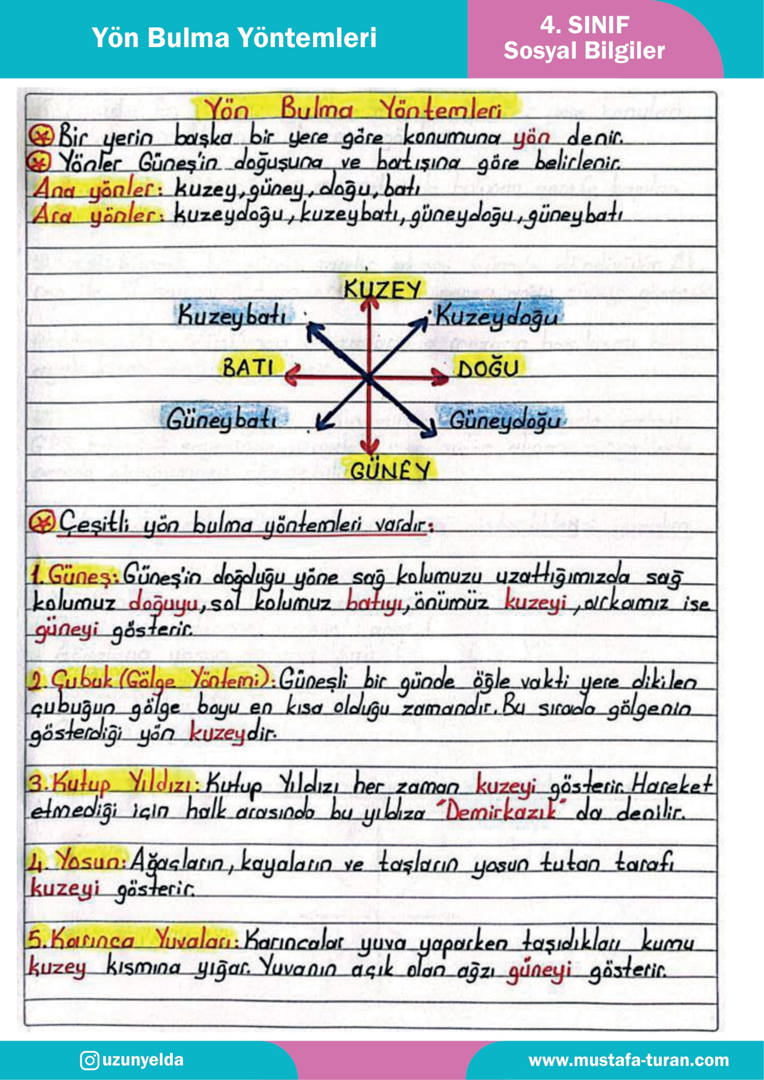 Yön Bulma Yöntemleri
4. SINIF
Sosyal Bilgiler
Yön Bulma Yöntemleri
Bir yerin başka bir yere göre konumuna yön denir.
Yönler Güneş'in doğuşuna ve batışına göre belirlenir.
Ana yönler: kuzey, güney, doğu, batı
Ara yönler: kuzeydoğu, kuzeybatı, güneydoğu, güneybatı
KUZEY
Kuzeybatı
Kuzeydoğu
BATI
DOĞU
Güneybatı
Güneydoğu
GÜNEY
Çeşitli yön bulma yöntemleri vardır:
1. Güneş: Güneş'in doğduğu yöne sağ kolumuzu uzattığımızda sağ
kolumuz doğuyu, sol kolumuz batıyı, önümüz kuzeyi, arkamız ise
güneyi gösterir.
2. Çubuk (Gölge Yöntemi): Güneşli bir günde öğle vakti yere dikilen
çubuğun gölge boyu en kısa olduğu zamandır. Bu sırada gölgenin
gösterdiği yön kuzeydir.
3. Kutup Yıldızı: Kutup Yıldızı her zaman kuzeyi gösterir. Hareket
etmediği için halk arasında bu yıldıza "Demirkazık" da denilir.
4. Yosun: Ağaçların, kayaların ve taşların yosun tutan tarafı
kuzeyi gösterir.
5. Karınca Yuvaları: Karıncalar yuva yaparken taşıdıkları kumu
kuzey kısmına yığar. Yuvanın açık olan ağzı güneyi gösterir.
uzunyelda
www.mustafa-turan.com